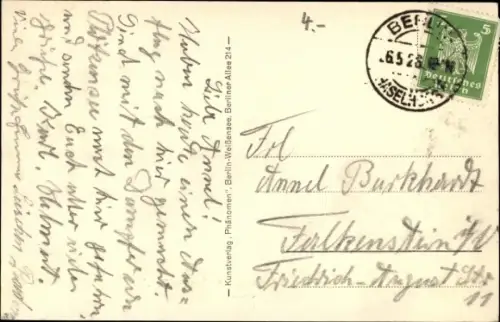 4.-
BERLIN
6.5.26
HASELHORST
5
Deutsches
Liebe Annel!
Haben heute einen Aus=
flug nach hier gemacht.
Sind mit dem Dampfer von
Plötzensee nach hier gefahren,
und senden Euch aller vielen
Grüße. Helmut.
Viele Grüße
— Kunstverlag „Phänomen", Berlin-Weißensee, Berliner Allee 214 —
Frl
Annel Burkhardt
Falkenstein i/V
Friedrich-August Str
11